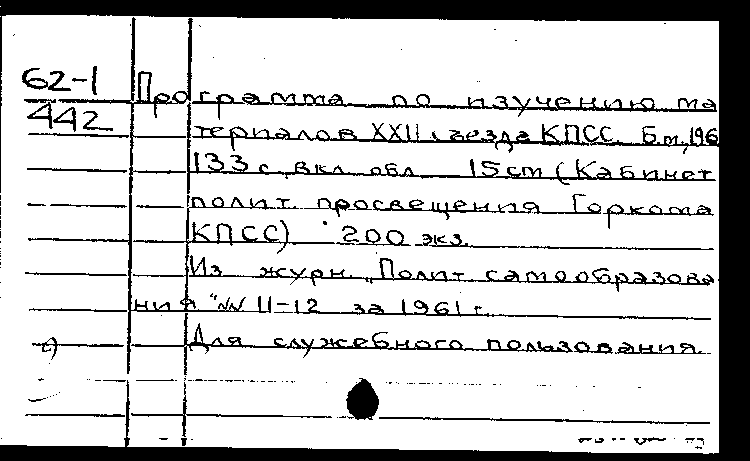 62-1
442
Программа по изучению ма
териалов XXII съезда КПСС. Б.м., 196
133 с. вкл. обл. 15 cm (Кабинет
полит. просвещения Горкома
КПСС) 200 экз.
Из журн. „Полит самообразова
ния" NN 11-12 за 1961 г.
Для служебного пользования.